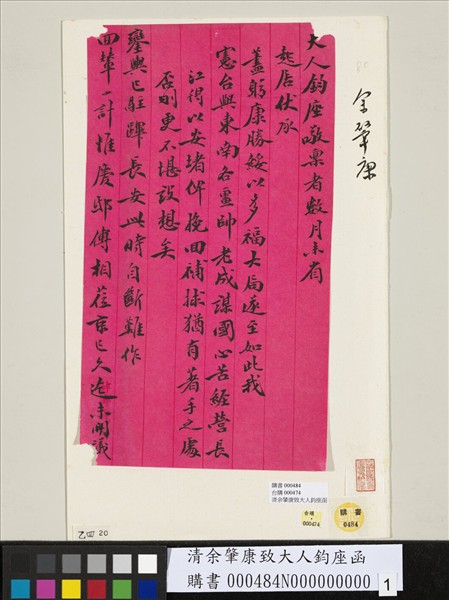 余肇康
大人鈞座敬稟者數月未省
起居伏承
蓋躬康勝綏以多福大局遂至如此我
憲台與東南各畺帥老成謀國心苦經營長
江得以安堵俾挽回補捄猶有著手之處
否則更不堪設想矣
鑾輿已駐蹕長安此時自斷難作
回輦一計惟慶邸傅相蒞京已久迄未開議
購書 000484
台購 000474
清余肇康致大人鈞座函
台購
000474
購書
0484
乙四 20
清余肇康致大人鈞座函
購書 000484N000000000
1